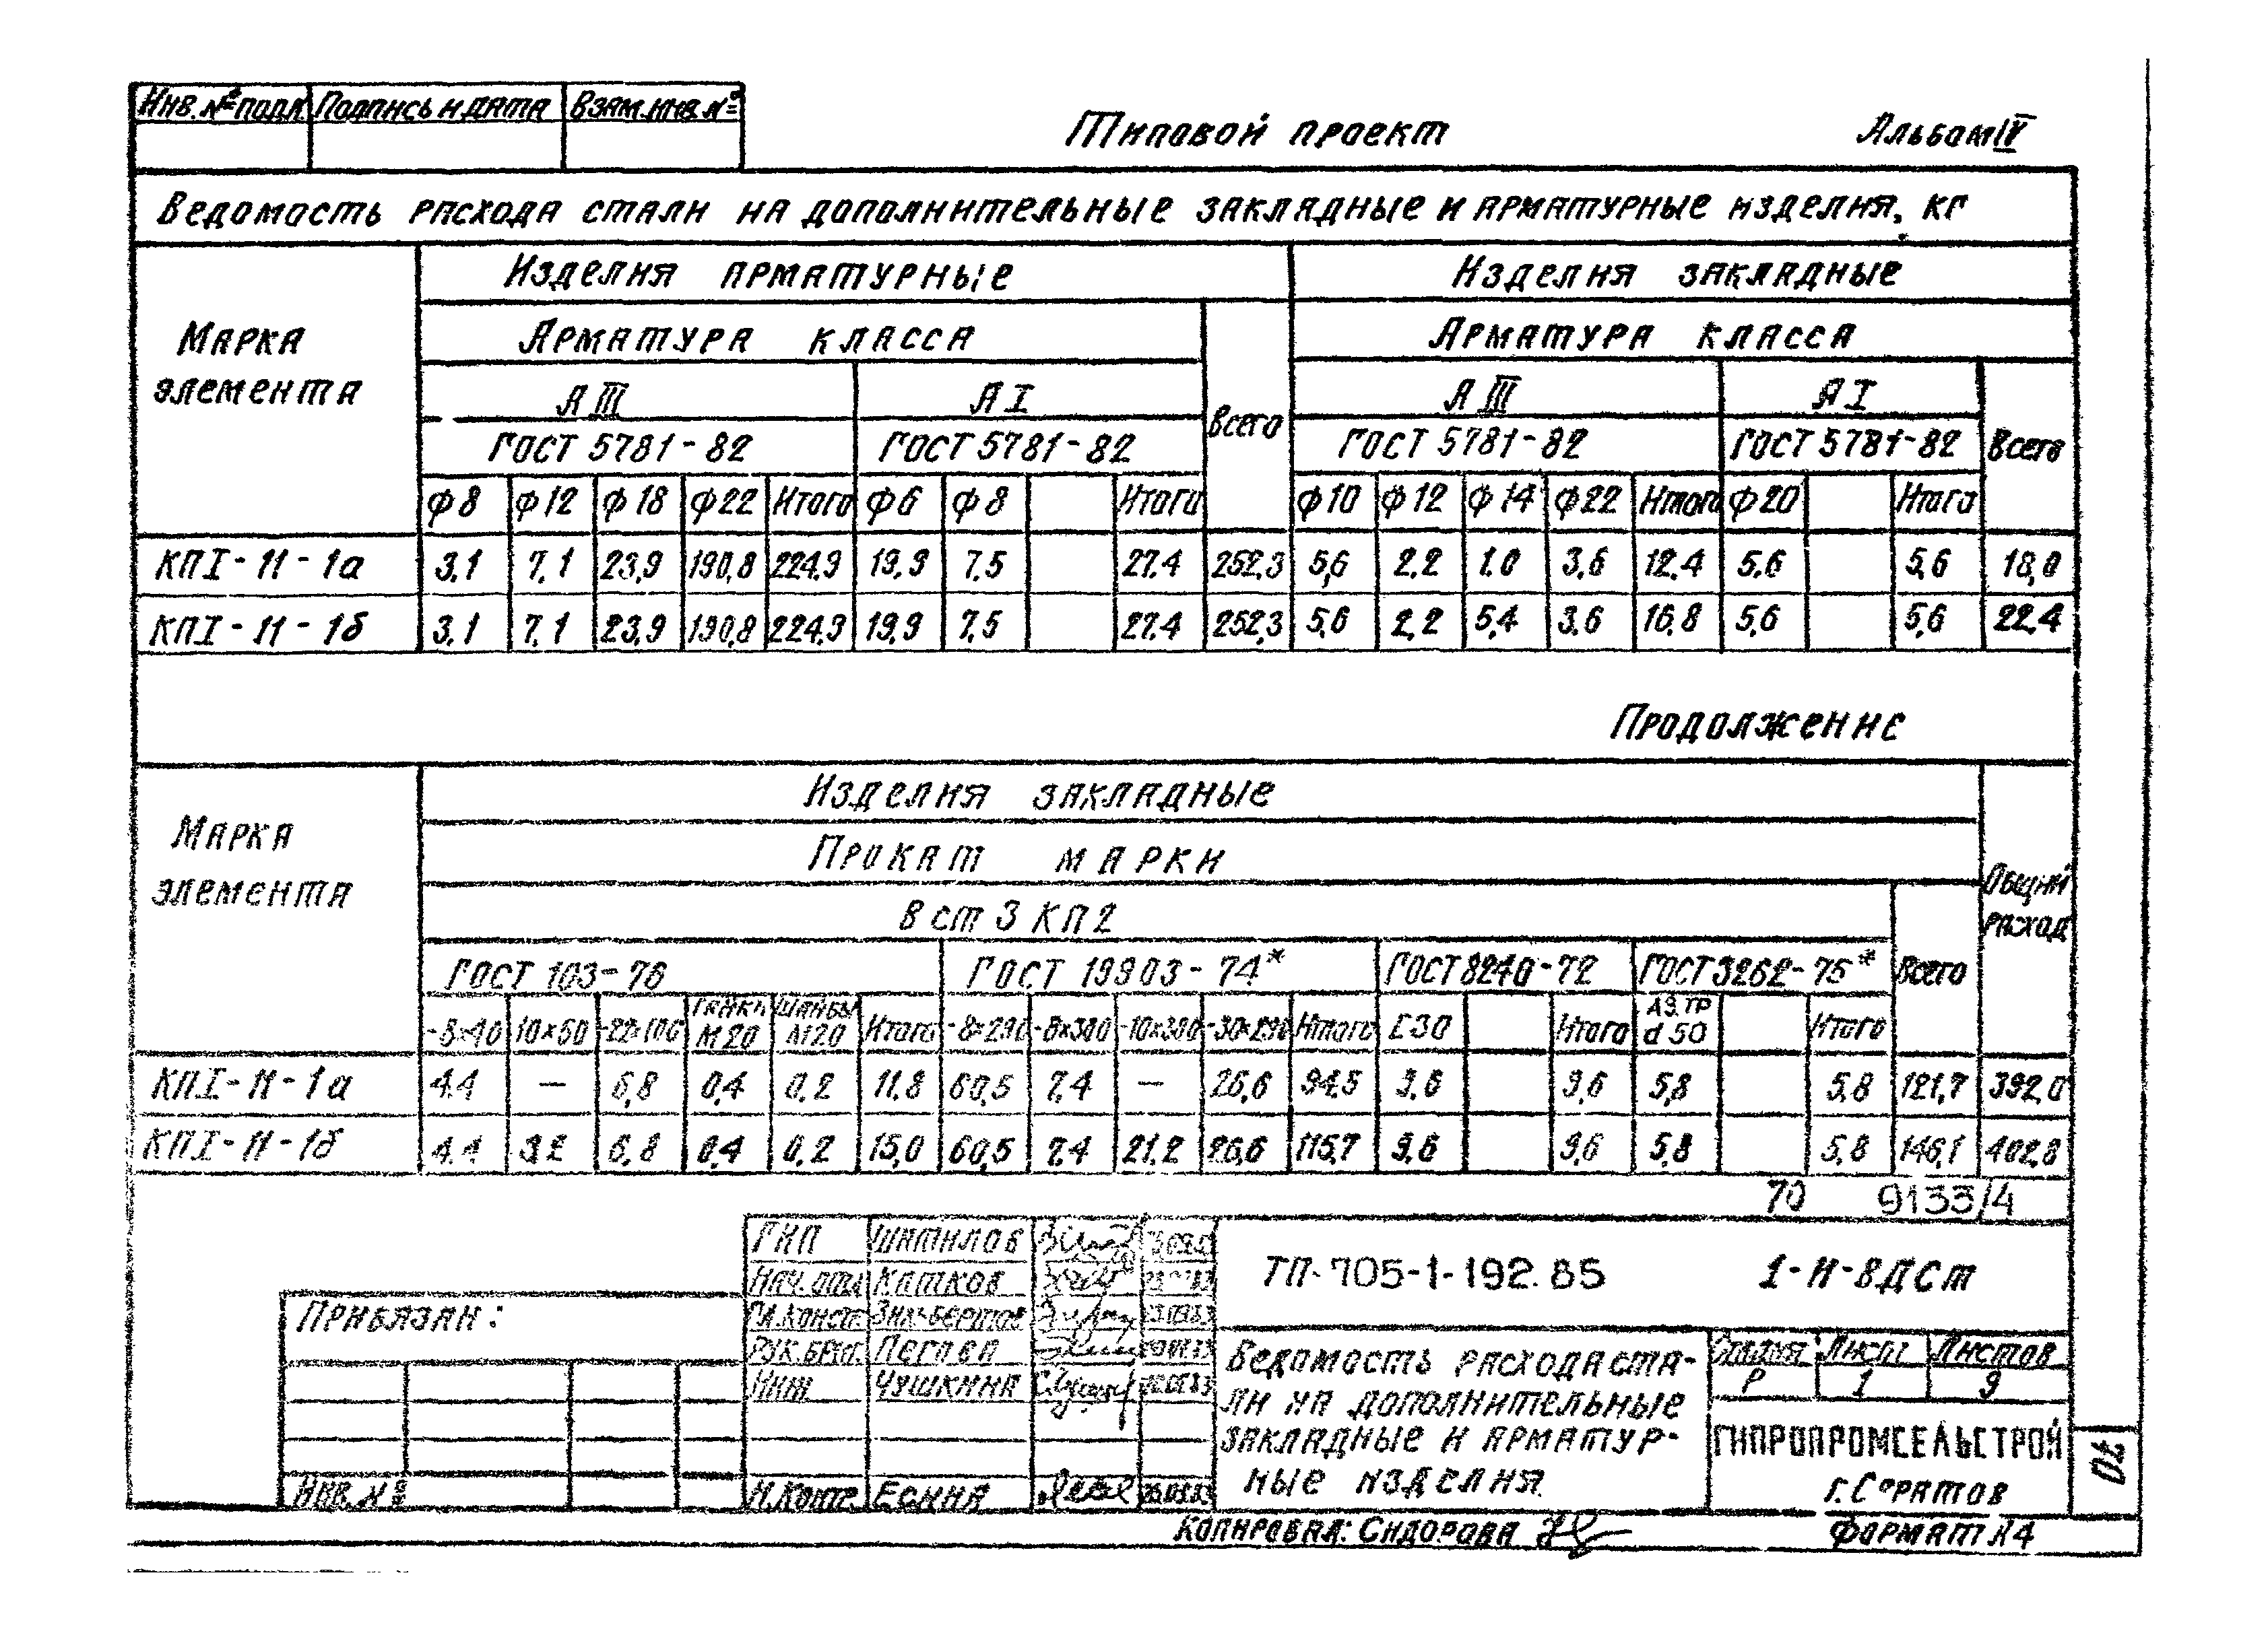 Инв. № подл. Подпись и дата Взам. инв. №
Типовой проект Альбом IV
Ведомость расхода стали на дополнительные закладные и арматурные изделия, кг
Марка элемента
Изделия арматурные Изделия закладные
Арматура класса Всего Арматура класса
А III А I А III А I Всего
ГОСТ 5781-82 ГОСТ 5781-82 ГОСТ 5781-82 ГОСТ 5781-82
Ф8 Ф12 Ф18 Ф22 Итого Ф6 Ф8 Итого Ф10 Ф12 Ф14 Ф22 Итого Ф20 Итого
КПI-И-1а 3,1 7,1 23,9 190,8 224,9 19,9 7,5 27,4 252,3 5,6 2,2 1,0 3,6 12,4 5,6 5,6 18,0
КПI-И-1б 3,1 7,1 23,9 190,8 224,9 19,9 7,5 27,4 252,3 5,6 2,2 5,4 3,6 16,8 5,6 5,6 22,4
Продолжение
Марка элемента
Изделия закладные Общий расход
Прокат марки
В ст 3 КП2 Всего
ГОСТ 103-76 ГОСТ 19903-74* ГОСТ 8240-72 ГОСТ 3262-75*
-8×40 10×60 -22×100 Гайки М20 Шайбы М20 Итого -8×290 -8×300 -10×300 -30×290 Итого [30 Итого d 50 Итого
КПI-И-1а 4,4 — 6,8 0,4 0,2 11,8 60,5 7,4 — 26,6 94,5 9,6 9,6 5,8 5,8 121,7 392,0
КПI-И-1б 4,4 3,2 6,8 0,4 0,2 15,0 60,5 7,4 21,2 26,6 115,7 9,6 9,6 5,8 5,8 146,1 402,8
70 9133/4
ГИП Шатилов
Нач. отд. Катков
Гл. констр.
Рук. бриг.
Инж. Чушкина
Н. Контр. Есина
Привязан:
Инв. №
ТП-705-1-192.85 1-И-8ДСт
Ведомость расхода ста-
ли на дополнительные
закладные и арматур-
ные изделия.
Стадия Лист Листов
Р 1 9
ГИПРОПРОМСЕЛЬСТРОЙ
г. Саратов
70
Копировал: Сидорова Формат А4